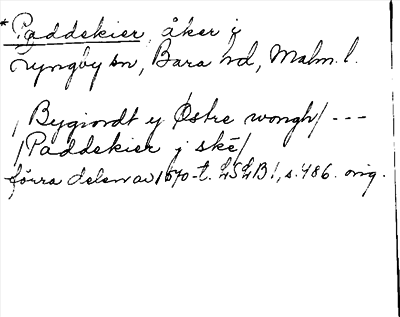 *Paddekier, åker i
Lyngby sn, Bara hd, Malm. l.
/Bygiordt ij Østre wongh/ ---
/Paddekier j ske/
förra delen av 1670-t. LSLB1, s. 486. orig.